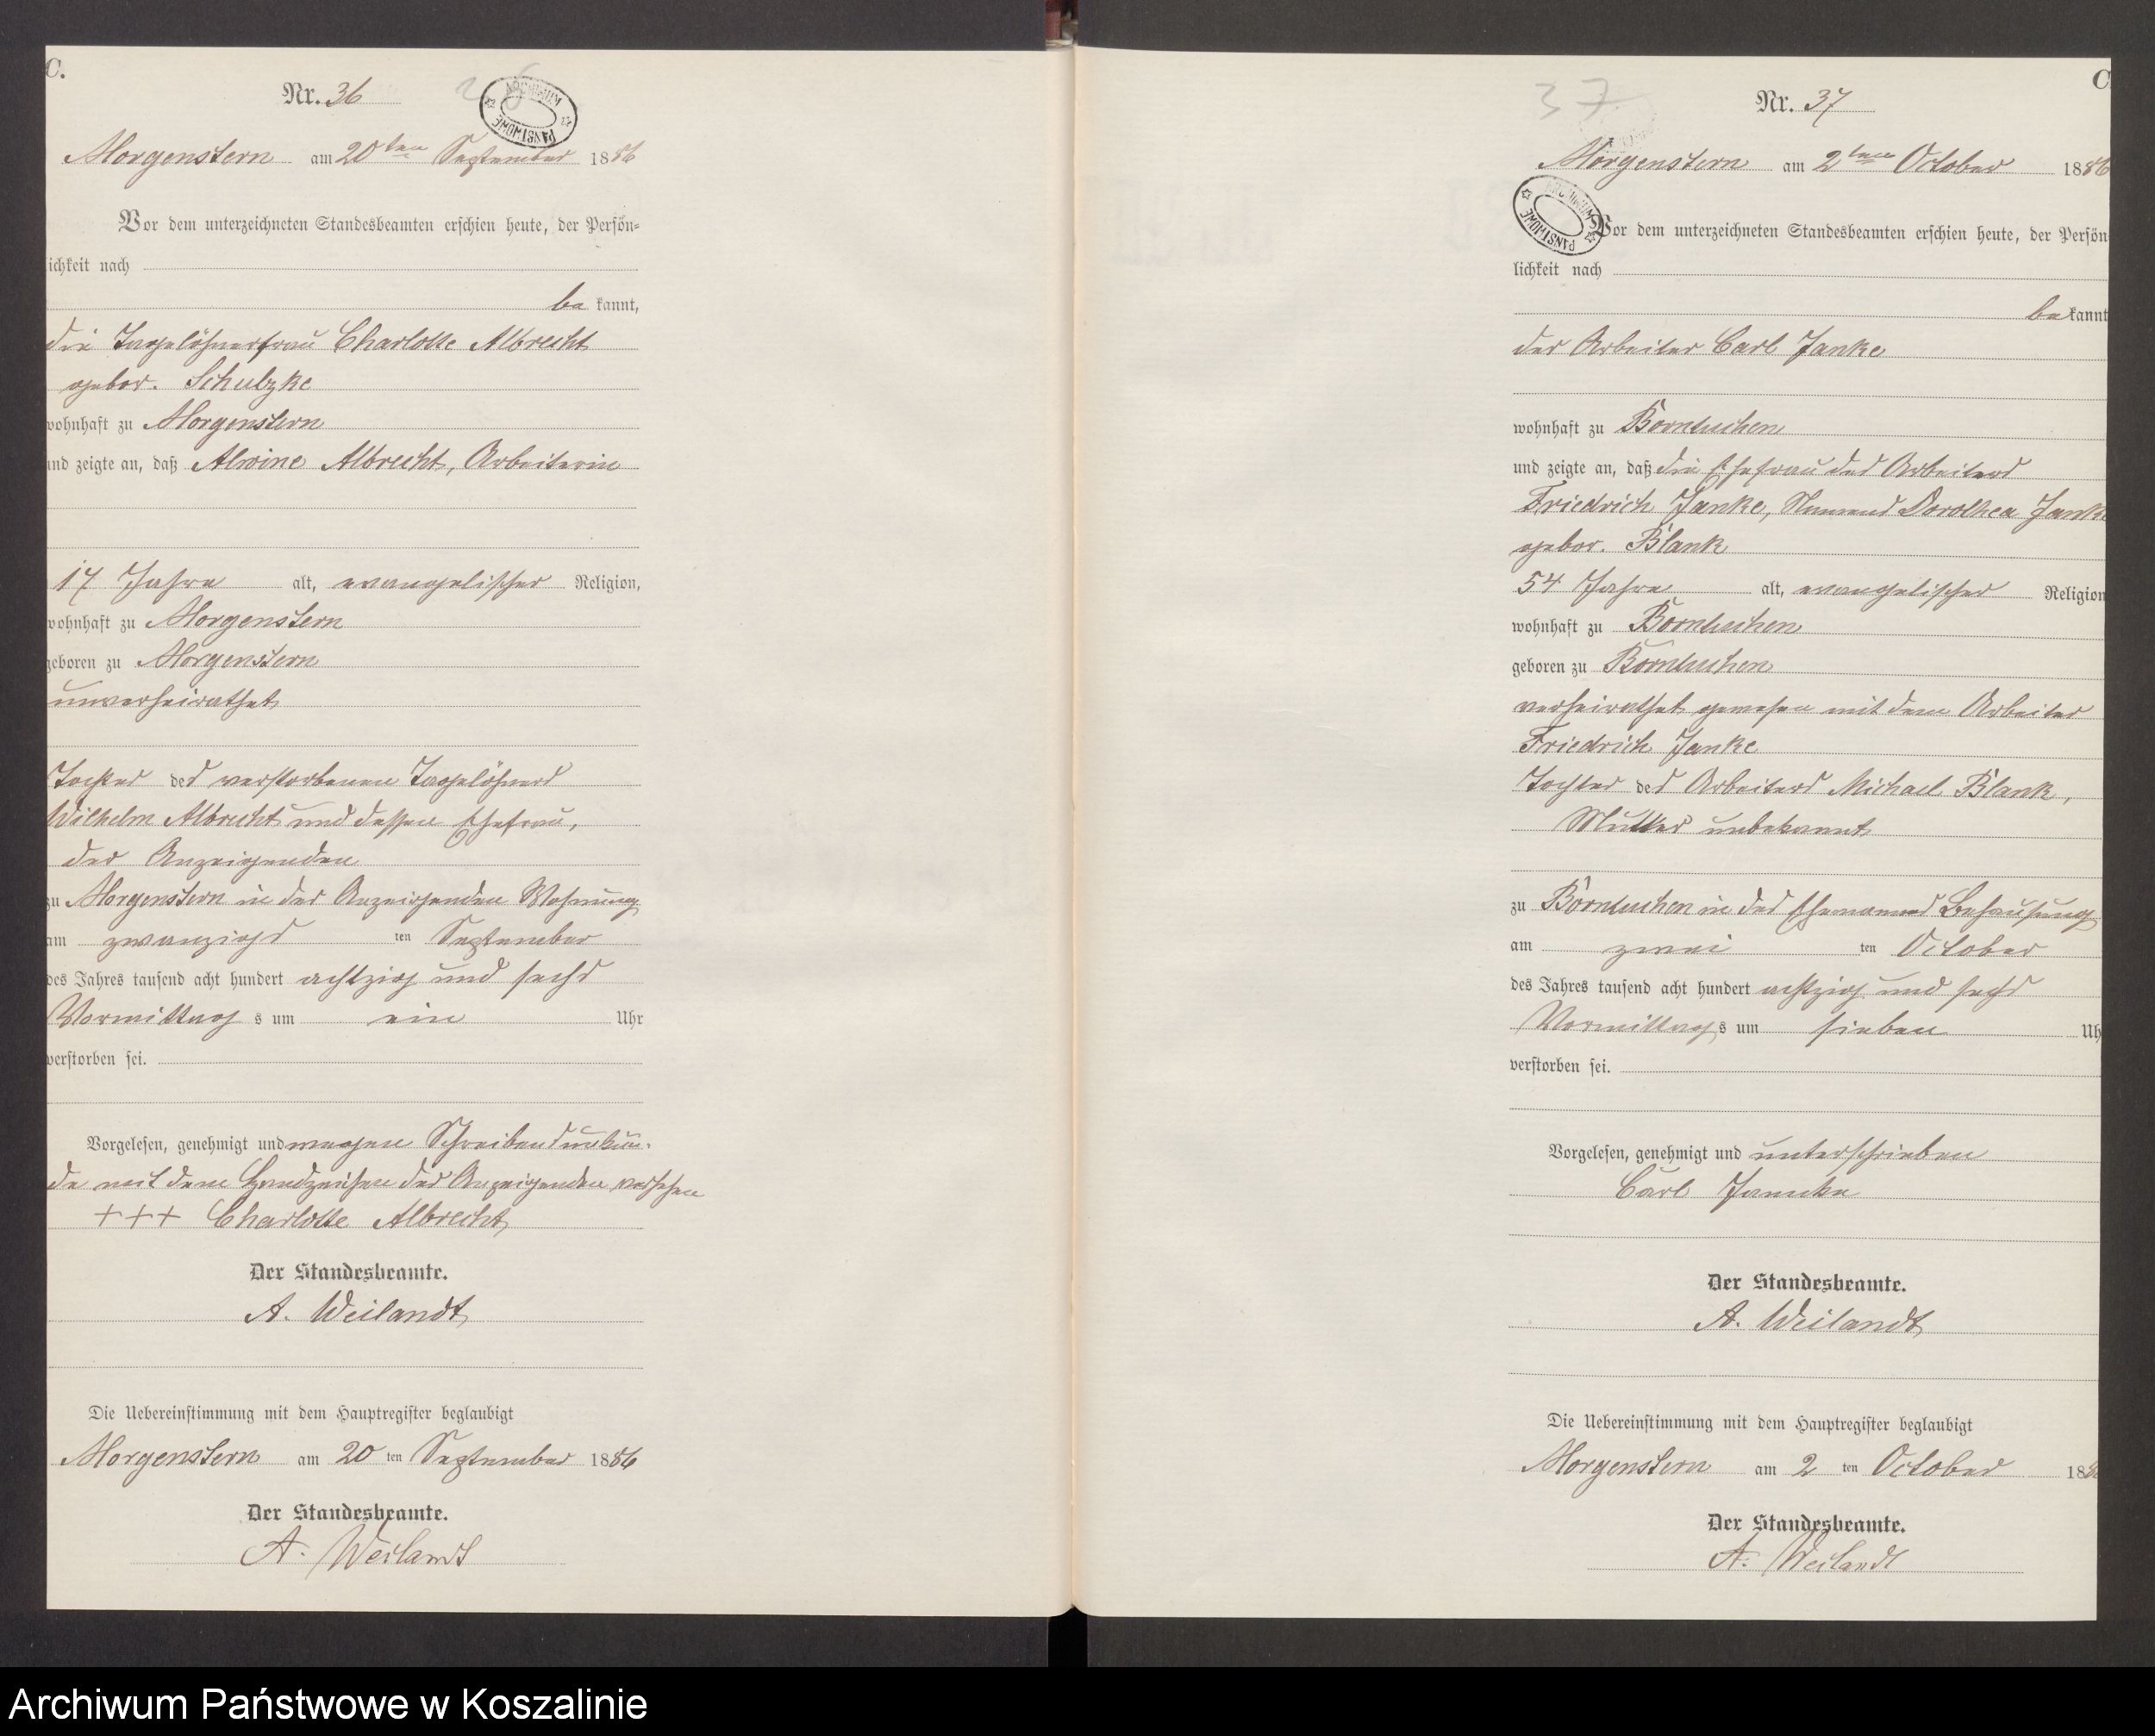 C.
Nr. 36
ARCHIWUM PAŃSTWOWE
Morgenstern am 20ten September 1886
Vor dem unterzeichneten Standesbeamten erschien heute, der Persön-
lichkeit nach
be kannt,
die Tagelöhnerfrau Charlotte Albrecht
gebor. Schulzke
wohnhaft zu Morgenstern
und zeigte an, daß Alwine Albrecht, Arbeiterin
17 Jahre alt, evangelischer Religion,
wohnhaft zu Morgenstern
geboren zu Morgenstern
unverheirathet
Tochter des verstorbenen Tagelöhners
Wilhelm Albrecht und dessen Ehefrau,
der Anzeigenden
zu Morgenstern in der Anzeigenden Wohnung
am zwanzigs ten September
des Jahres tausend acht hundert achtzig und sechs
Vormittag s um ein Uhr
verstorben sei.
Vorgelesen, genehmigt und wegen Schreibensunkun-
de mit dem Handzeichen der Anzeigenden versehen
+++ Charlotte Albrecht
Der Standesbeamte.
A. Weilandt
Die Uebereinstimmung mit dem Hauptregister beglaubigt
Morgenstern am 20 ten September 1886
Der Standesbeamte.
A. Weilandt
C
37
Nr. 37
Morgenstern am 2ten October 1886
ARCHIWUM PAŃSTWOWE
Vor dem unterzeichneten Standesbeamten erschien heute, der Persön
lichkeit nach
be kannt
der Arbeiter Carl Janke
wohnhaft zu Borntuchen
und zeigte an, daß die Ehefrau des Arbeiters
Friedrich Janke, Namens Dorothea Janke
gebor. Blank
54 Jahre alt, evangelischer Religion
wohnhaft zu Borntuchen
geboren zu Borntuchen
verheirathet gewesen mit dem Arbeiter
Friedrich Janke
Tochter des Arbeiters Michael Blank,
Mutter unbekannt
zu Borntuchen in des Ehemannes Behausung
am zwei ten October
des Jahres tausend acht hundert achtzig und sechs
Vormittag s um sieben Uh
verstorben sei.
Vorgelesen, genehmigt und unterschrieben
Carl Jancke
Der Standesbeamte.
A. Weilandt
Die Uebereinstimmung mit dem Hauptregister beglaubigt
Morgenstern am 2 ten October 188
Der Standesbeamte.
A. Weilandt
Archiwum Państwowe w Koszalinie